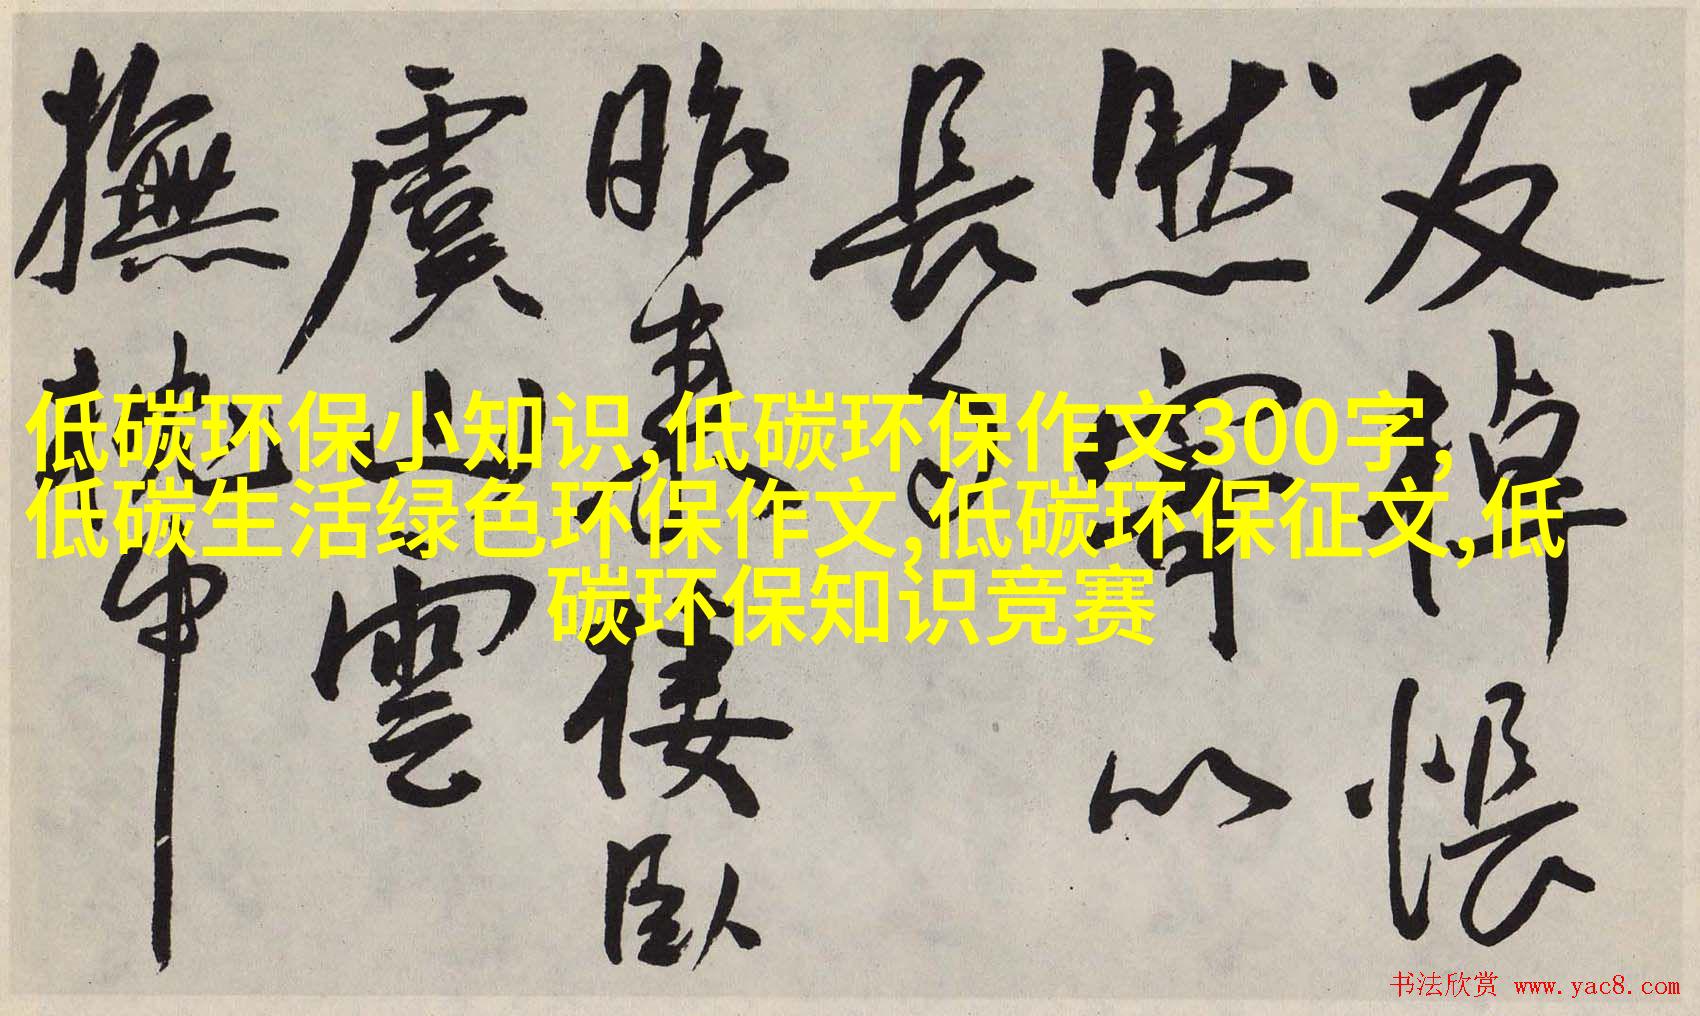 反棹悵
然寄以
長
昨
樓臥
虞山雲
撫
低碳环保小知识,低碳环保作文300字,
低碳生活绿色环保作文,低碳环保征文,低
碳环保知识竞赛
书法欣赏 www.yac8.com